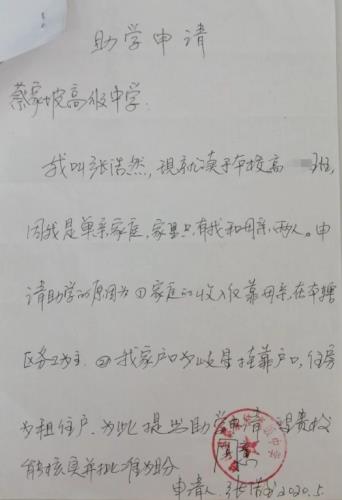 助学申请
蔡家坡高级中学:
我叫张浩然,现就读于本校高 班,
因我是单亲家庭,家里只有我和母亲两人。申
请助学的原因为①家庭的收入仅靠母亲在本辖
区务工为主.②我家户口为岐星挂靠户口,住房
为租住户.为此提出助学申请 望贵校
能核实并批准为盼
申请人:张浩 2020.5